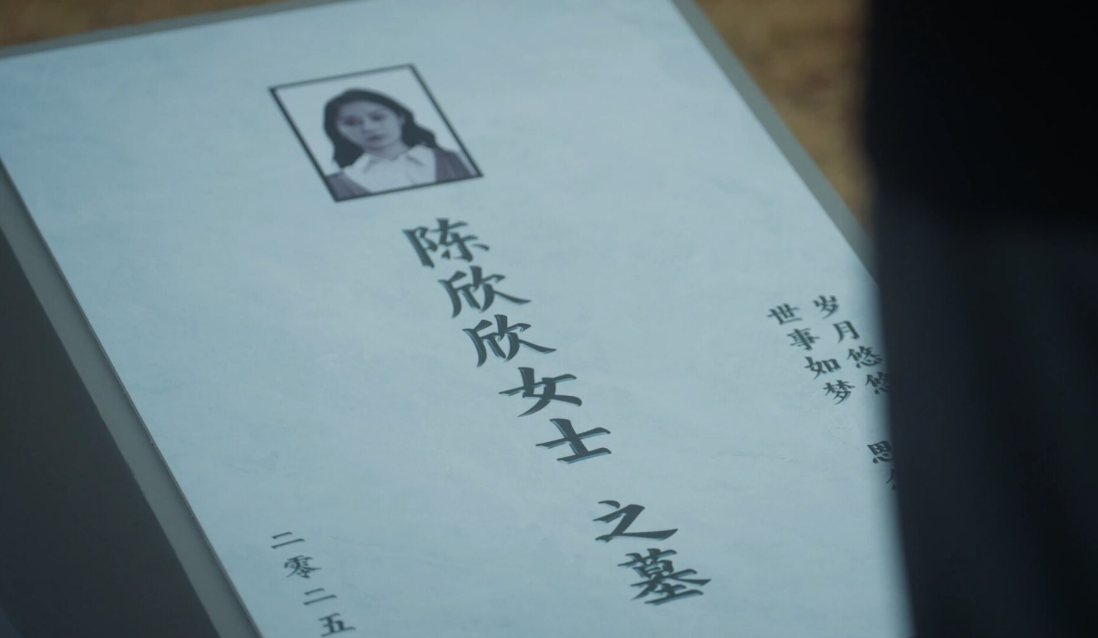 岁月悠悠 思
世事如梦
陈欣欣女士 之墓
二零二五